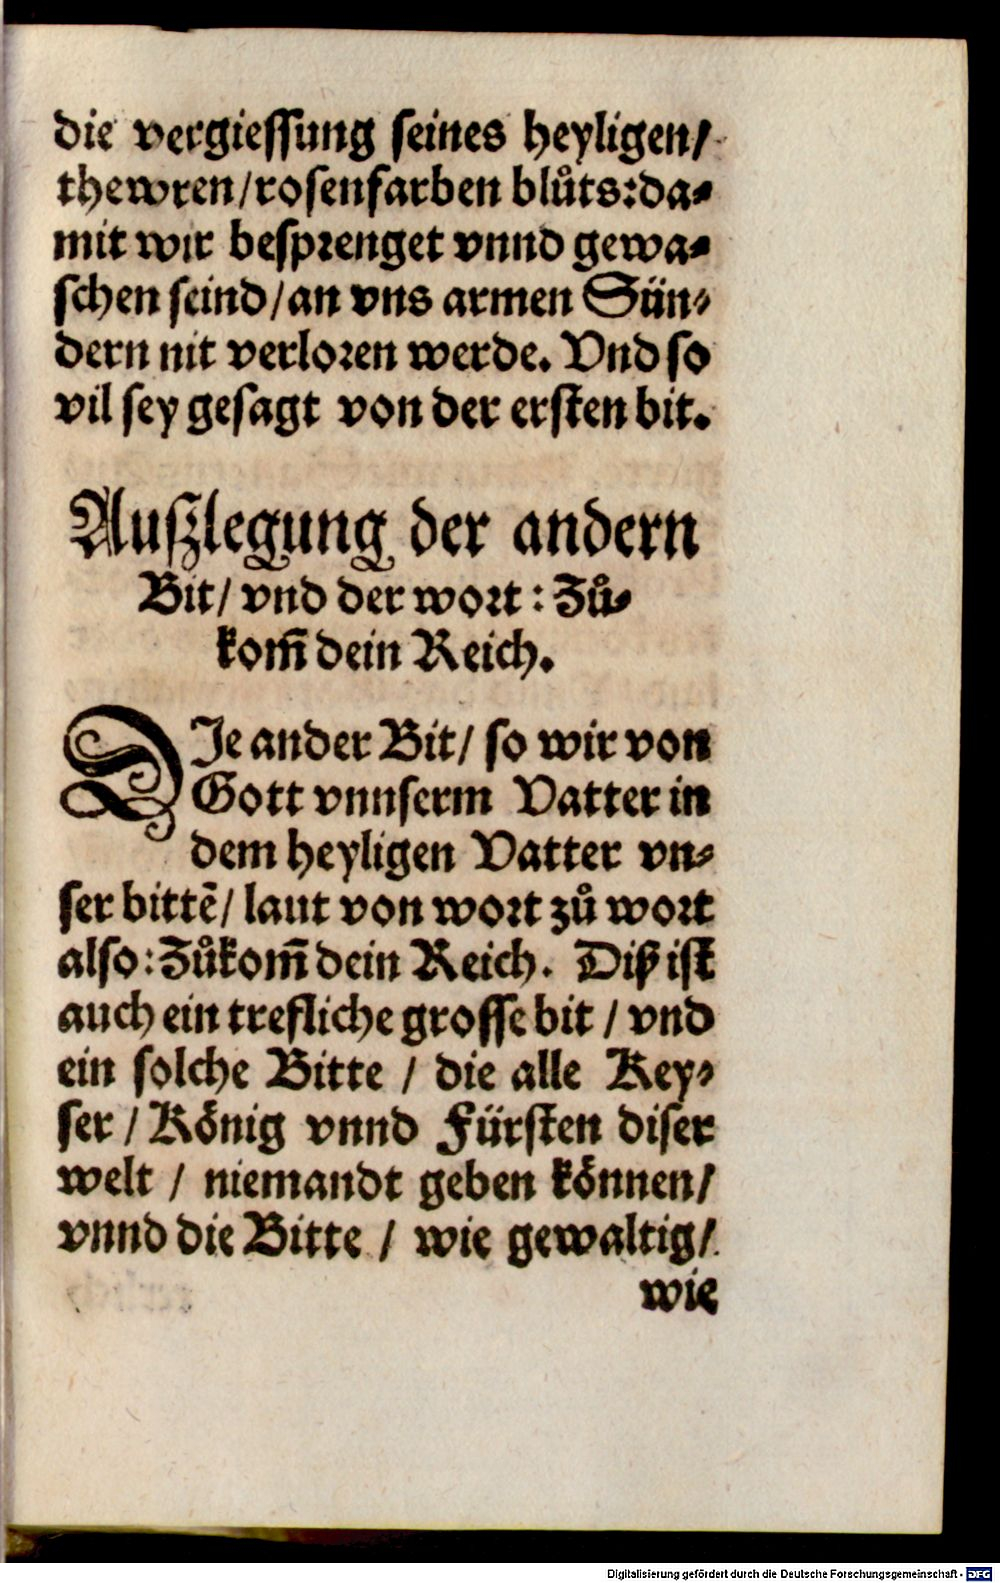 die vergiessung seines heyligen/
thewren/rosenfarben blůts:da-
mit wir besprenget vnnd gewa-
schen seind/an vns armen Sün-
dern nit verloren werde. Vnd so
vil sey gesagt von der ersten bit.
Auszlegung der andern
Bit/ vnd der wort : Zů-
kom̃ dein Reich.
DIe ander Bit/ so wir von
Gott vnnserm Vatter in
dem heyligen Vatter vn-
ser bittẽ/ laut von wort zů wort
also:Zůkom̃ dein Reich. Diß ist
auch ein trefliche grosse bit / vnd
ein solche Bitte / die alle Key-
ser / König vnnd Fürsten diser
welt / niemandt geben können/
vnnd die Bitte / wie gewaltig/
wie
Digitalisierung gefördert durch die Deutsche Forschungsgemeinschaft - DFG